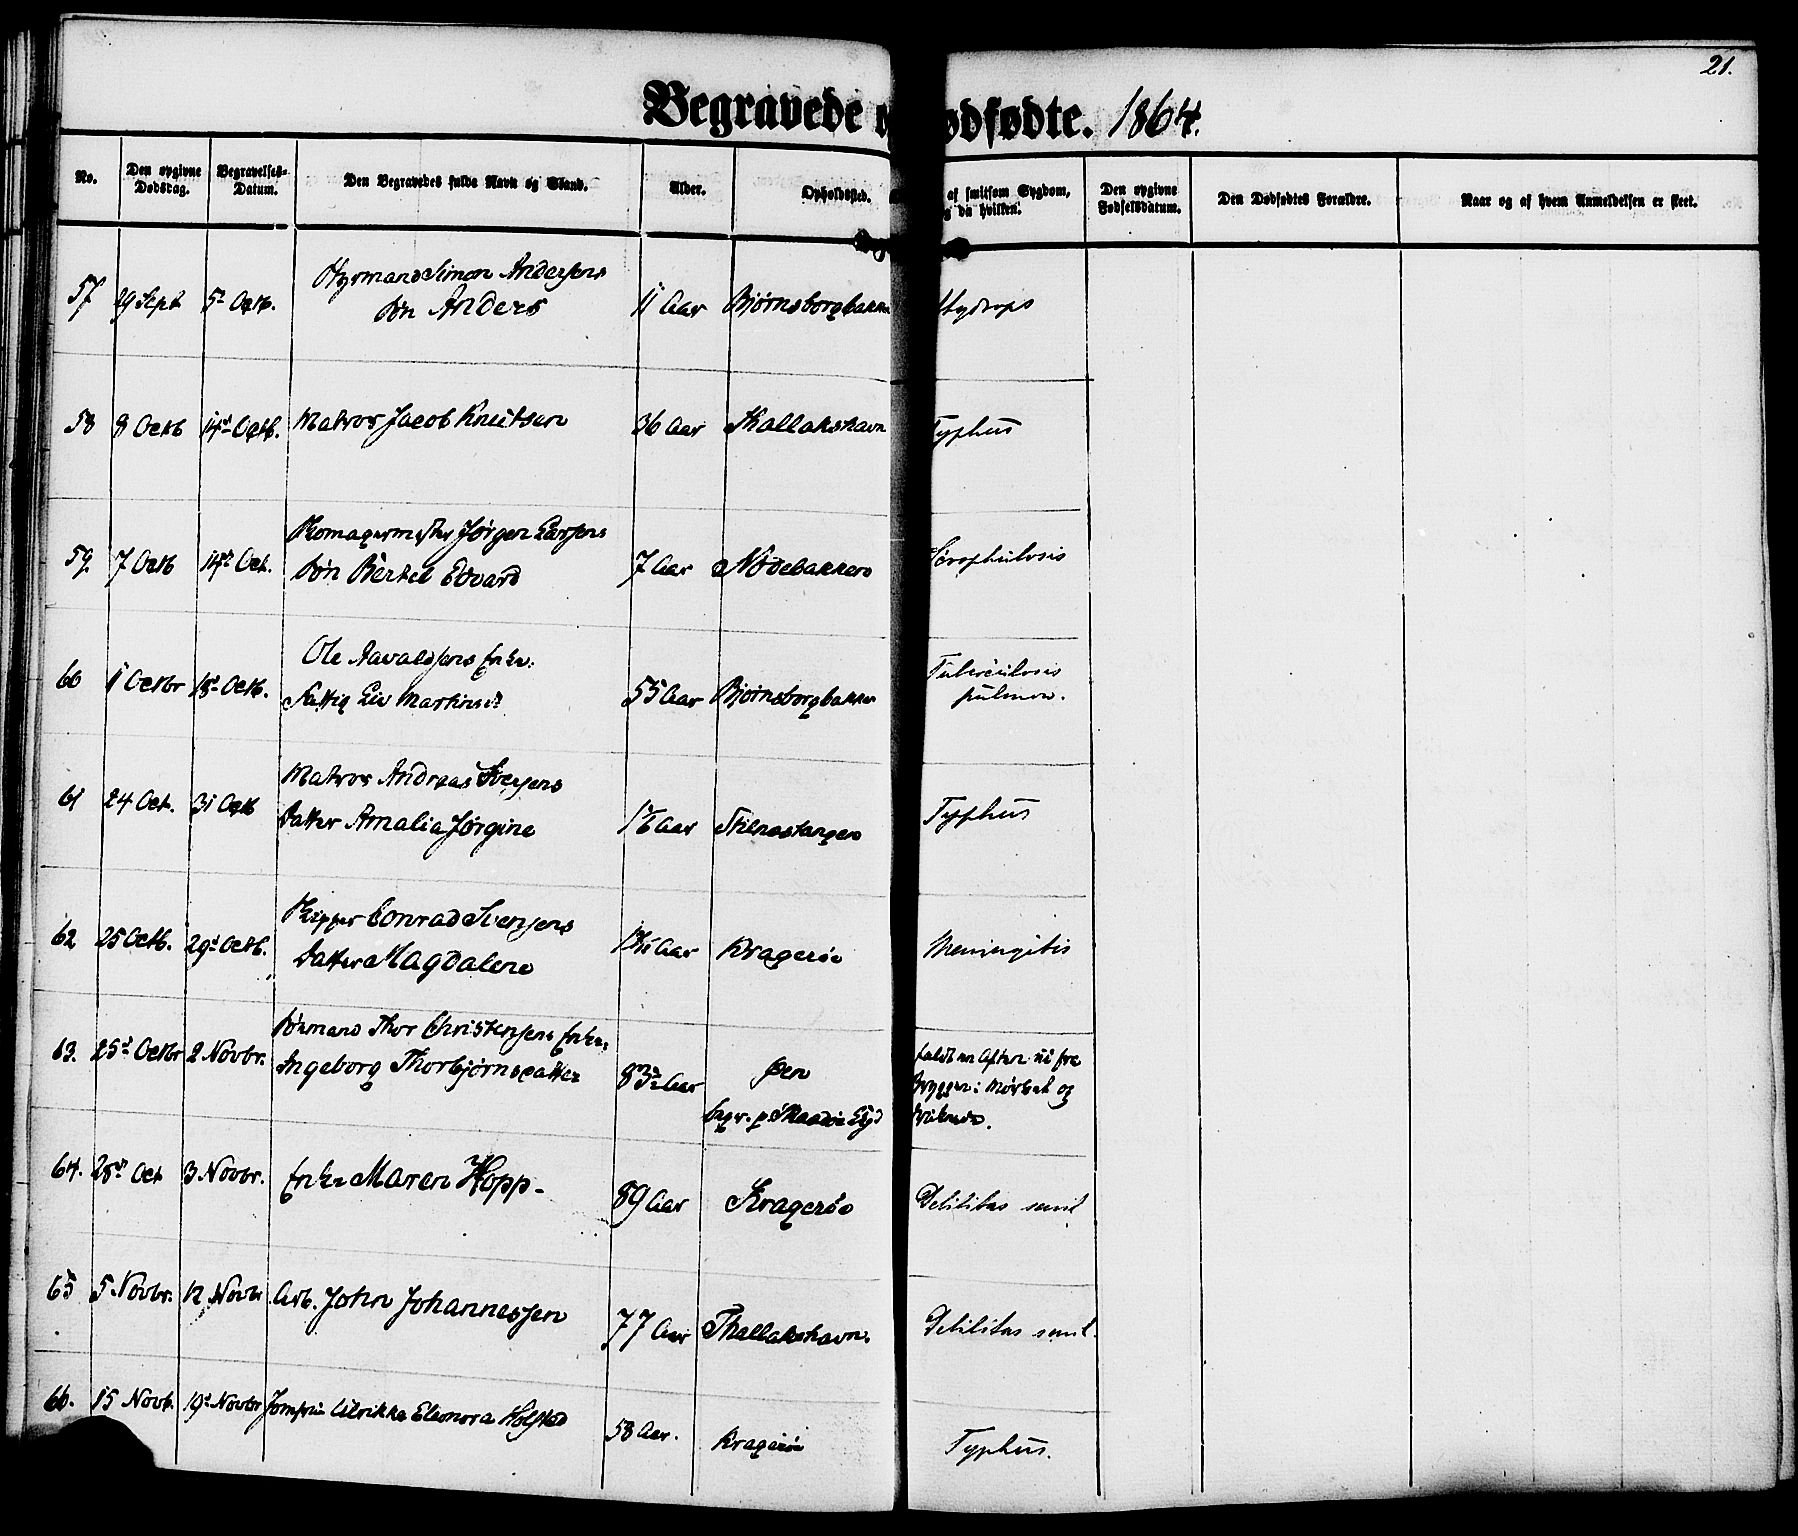 21.
Begravede o dødfødte. 1864.
No. Den opgivne Dødsdag. Begravelses-Datum. Den Begravedes fulde Navn og Stand. Alder. Opholdssted. af smitsom Sygdom, og da hvilken. Den opgivne Fødselsdatum. Den Dødfødtes Forældre. Naar og af hvem Anmeldelsen er skeet.
57 29 Sept 5 Octb. Styrmand Simon Andersens
Søn Anders 11 Aar Bjørnsborgbakken Hydrops
58 8 Octb 14de Octb. Matros Jacob Knutsen 36 Aar Thallakshavn Typhus
59. 7 Octb 14de Oct. Skomagermester Jørgen Larsens
Søn Bertel Edvard 7 Aar Nodebakken Scrophulosis
60 11 Octbr 18de Octb. Ole Aavaldsens Enke.
Fattig Liv Martinsd. 55 Aar Bjørnsborgbakken Tuberculosis
pulmon.
61 24 Oct. 31 Octb Matros Andreas Iversens
Datter Amalia Jørgine Aar Stilnestangen Typhus
62 25 Octb. 29de Octb. Skipper Conrad Svensens
Datter Magdalene Aar Kragerøe Meningitis
63. 25de Octbr 2 Novbr. Sømand Thor Christensens Enke
Ingeborg Thorbjørnsdatter Aar Øen
begr. p Skaadøe faldt en Aften ud fra
Bryggen i Mørket og
druknede.
64. 28de Oct 3 Novbr. Enke Maren Hopp. 89 Aar Kragerøe Debilitas senil
65 5 Novbr. 12 Novbr Arb. John Johannessen 77 Aar Thallakshavn. Debilitas senil.
66. 15 Novb. 19de Novbr Jomfru Ulrikke Eleonora Holsted 58 Aar. Kragerøe Typhus.